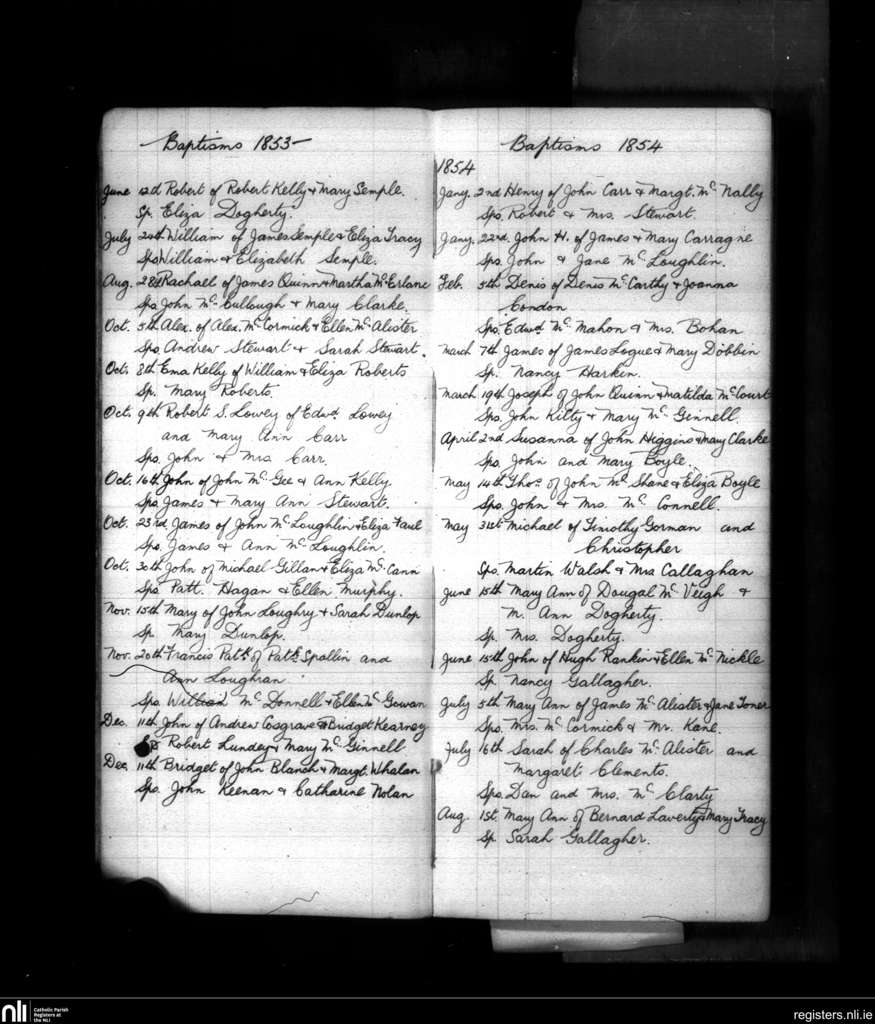 Baptisms 1853
June 12d Robert of Robert Kelly & Mary Semple.
Sp. Eliza Dogherty.
July 24th William of James Semple & Eliza Tracy
Sps William & Elizabeth Semple.
Aug. 28th Rachael of James Quinn & Martha McErlane
Sps John McCullough & Mary Clarke.
Oct. 5th Alex. of Alex. McCormick & Ellen McAlester
Sps Andrew Stewart & Sarah Stewart.
Oct. 8th Ema Kelly of William & Eliza Roberts
Sp. Mary Roberts.
Oct. 9th Robert S. Lowey of Edwd. Lowey
and Mary Ann Carr
Sps. John & Mrs. Carr.
Oct. 16th John of John McGee & Ann Kelly.
Sps James & Mary Ann Stewart.
Oct. 23rd James of John McLoughlin & Eliza Faul
Sps. James & Ann McLoughlin.
Oct. 30th John of Michael Gillan & Eliza McCann
Sps. Patk. Hagan & Ellen Murphy.
Nov. 15th Mary of John Loughry & Sarah Dunlop
Sp. Mary Dunlop.
Nov. 20th Francis Patk. of Patk. Spallin and
Ann Loughran
Sps. William McDonnell & Ellen McGowan
Dec. 11th John of Andrew Cosgrave & Bridget Kearney
Sps Robert Lundey & Mary McGinnell
Dec. 11th Bridget of John Blanch & Margt. Whalan
Sps. John Keenan & Catharine Nolan
Baptisms 1854
1854
Jany. 2nd Henry of John Carr & Margt. McNally
Sps. Robert & Mrs. Stewart.
Jany. 22nd. John H. of James & Mary Carragne
Sps. John & Jane McLoughlin.
Feb. 5th Denis of Denis McCarthy & Joanna
Condon
Sps. Edwd. McMahon & Mrs. Bohan
March 7th James of James Logue & Mary Dobbin
Sp. Nancy Harkin.
March 19th Joseph of John Quinn & Matilda McCourt
Sps. John Kilty & Mary McGinnell.
April 2nd Susanna of John Higgins & Mary Clarke
Sps. John and Mary Boyle.
May 14th Thos. of John McShane & Eliza Boyle
Sps. John & Mrs. McConnell.
May 31st Michael of Timothy Gorman and
Christopher
Sps. Martin Walsh & Mrs Callaghan
June 15th Mary Ann of Dougal McVeigh &
M. Ann Dogherty.
Sp. Mrs. Dogherty.
June 15th John of Hugh Rankin & Ellen McNickle
Sp. Nancy Gallagher.
July 5th Mary Ann of James McAlister & Jane Toner
Sps. Mrs. McCormick & Mr. Kane.
July 16th Sarah of Charles McAlester and
Margaret Clements.
Sps. Dan and Mrs. McClarty
Aug. 1st. Mary Ann of Bernard Laverty & Mary Tracy
Sp. Sarah Gallagher.
nli Catholic Parish Registers at the NLI
registers.nli.ie